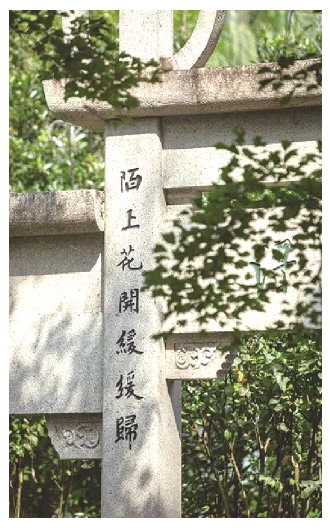 陌上花開緩緩歸